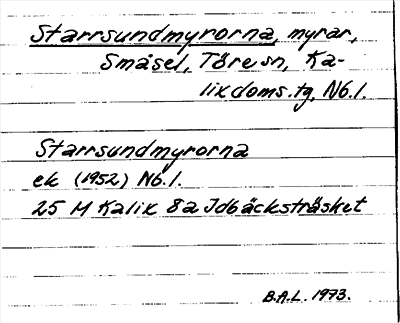 Starrsundmyrorna, myrar,
Småsel, Töre sn, Ka-
lix doms.tg, Nb.l.
Starrsundmyrorna
ek (1952) Nb.l.
25 M Kalix 8a Idbäcksträsket
B.A.L. 1973.